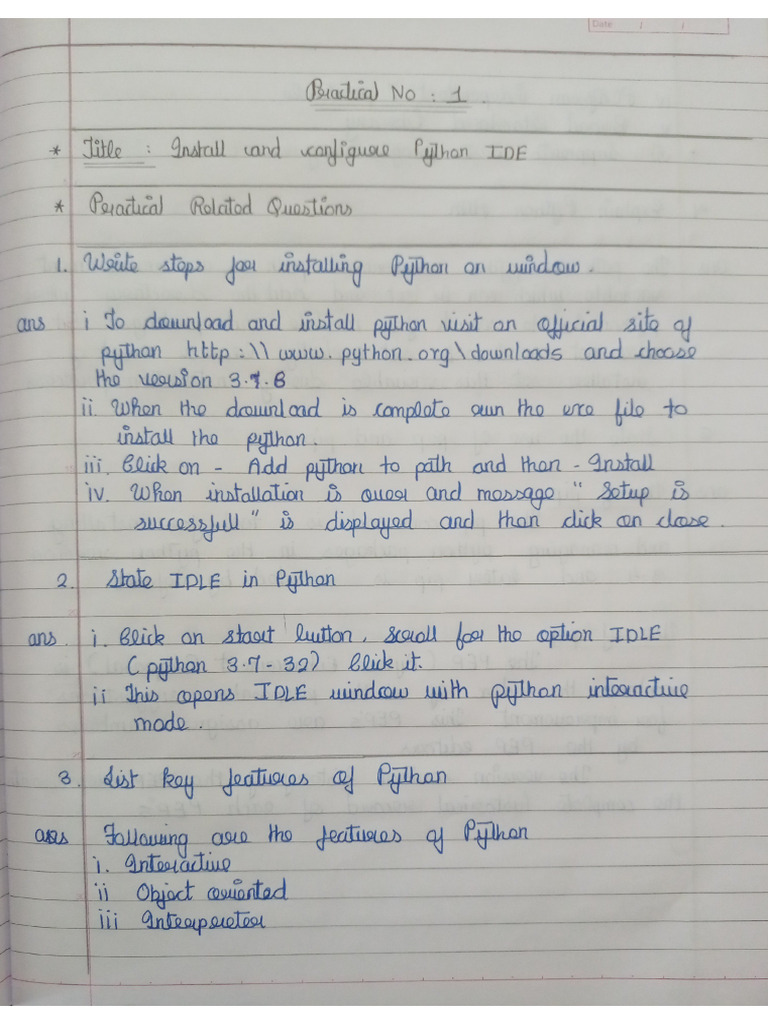 Date : :
Practical No : 1.
* Title : Install and configure Python IDE
* Practical Related Questions
1. Write steps for installing Python on window.
ans i To download and install python visit on official site of
python http:\\www.python.org\downloads and choose
the version 3.7.8
ii. When the download is complete run the exe file to
install the python.
iii. Click on - Add python to path and then - Install
iv. When installation is over and message "Setup is
successfull" is displayed and then click on close.
2. State IDLE in Python
ans. i. Click on start button, scroll for the option IDLE
(python 3.7-32) Click it.
ii This opens IDLE window with python interactive
mode.
3. List key features of Python
ans Following are the features of Python
i. Interactive
ii Object oriented
iii Interpreter